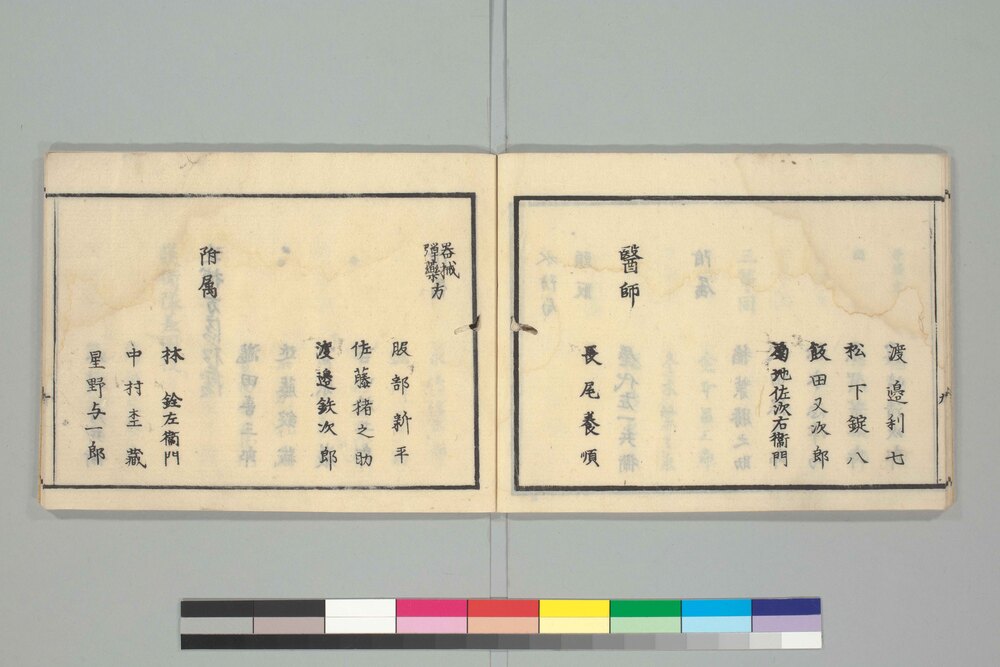 渡邉利七
松下錠八
飯田又次郎
菊地佐次右衞門
醫師
長尾養順
器械
彈藥方
服部新平
佐藤猪之助
渡邉欽次郎
附属
林銓左衞門
中村杢藏
星野与一郎